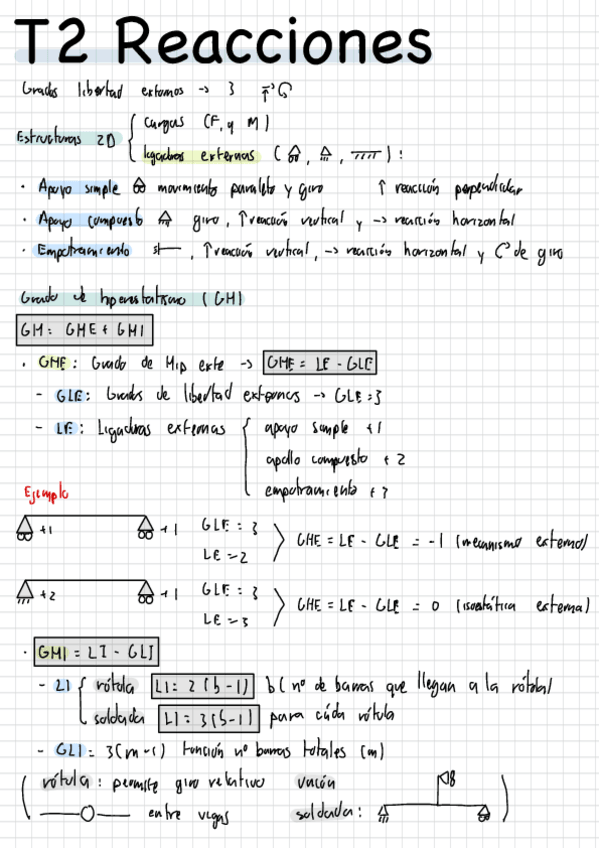 T2 Reacciones
Grados libertad externos -> 3
Estructuras 2D { cargas (F, q M)
ligaduras externas ( , , ) :
· Apoyo simple movimiento paralelo y giro ↑ reacción perpendicular
· Apoyo compuesto giro, ↑ reacción vertical y -> reacción horizontal
· Empotramiento , ↑ reacción vertical, -> reacción horizontal y de giro
Grado de hiperestatismo (GH)
GH: GHE + GHI
· GHE: Grado de Hip exte -> GHE = LE - GLE
- GLE: Grados de libertad externos -> GLE = 3
- LE: Ligaduras externas { apoyo simple +1
apollo compuesto + 2
empotramiento + 3
Ejemplo
+1 +1 GLE = 3
LE = 2
GHE = LE - GLE = -1 (mecanismo externo)
+2 +1 GLE = 3
LE = 3
GHE = LE - GLE = 0 (isostática externa)
· GHI = LI - GLI
- LI { rótula LI = 2(b-1) b (nº de barras que llegan a la rótula)
soldada LI = 3(b-1) para cada rótula
- GLI = 3(m-1) función nº barras totales (m)
( rótula: permite giro relativo
entre vigas
unión
soldada: )